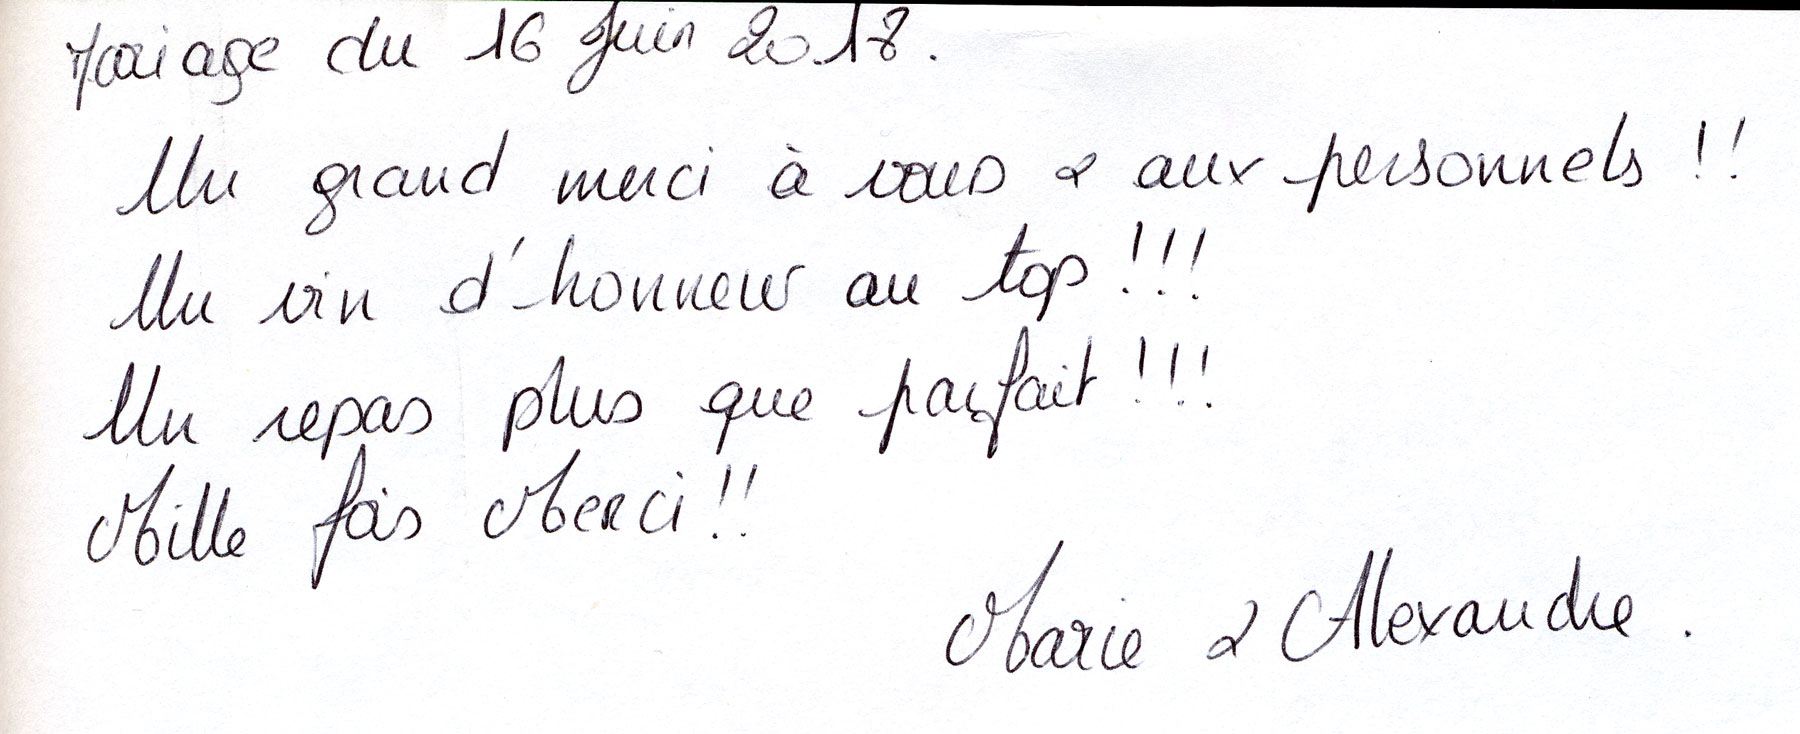 Mariage du 16 Juin 2018.
Un grand merci à vous & aux personnels !!
Un vin d'honneur au top !!!
Un repas plus que parfait !!!
Mille fois Merci !!
Marie & Alexandre.